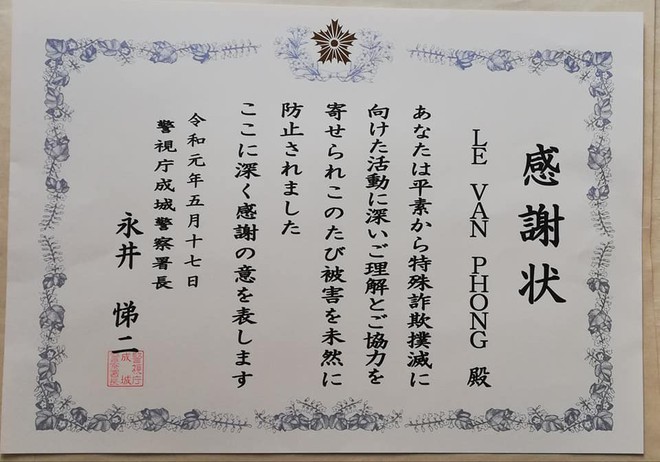 感謝状
LE VAN PHONG 殿
あなたは平素から特殊詐欺撲滅に
向けた活動に深いご理解とご協力を
寄せられこのたび被害を未然に
防止されました
ここに深く感謝の意を表します
令和元年五月十七日
警視庁成城警察署長
永井 悌二